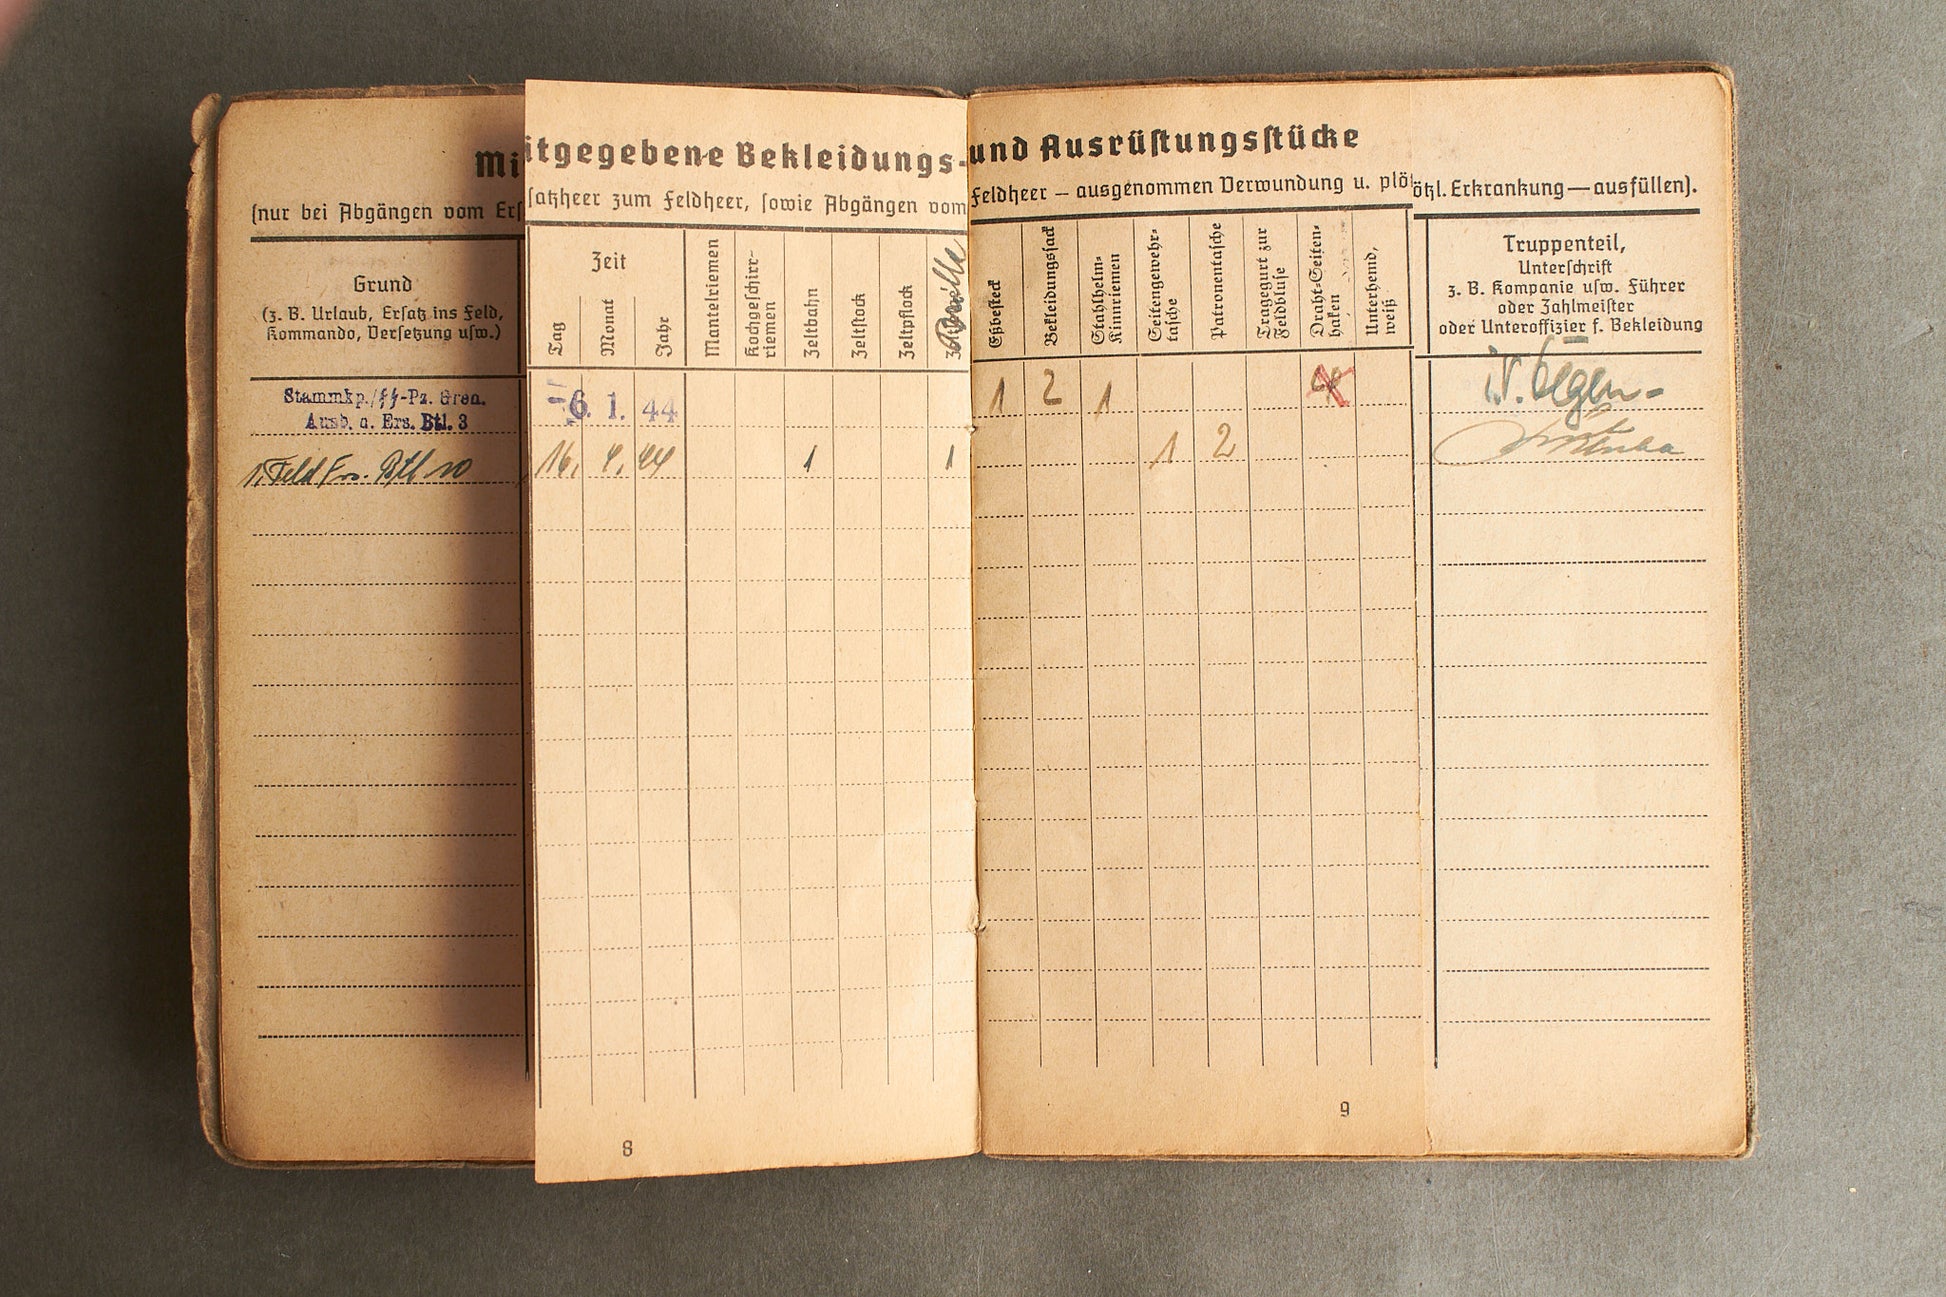 Mitgegebene Bekleidungs- und Ausrüstungsstücke
(nur bei Abgängen vom Ersatzheer zum Feldheer, sowie Abgängen vom Feldheer — ausgenommen Verwundung u. plötzl. Erkrankung — ausfüllen).
Grund
(z. B. Urlaub, Ersatz ins Feld,
Kommando, Versetzung usw.)
Zeit
Tag
Monat
Jahr
Mantelriemen
Kochgeschirr-
riemen
Zeltbahn
Zeltstock
Zeltpflock
Eßbesteck
Bekleidungssack
Stahlhelm-
Kinnriemen
Seitengewehr-
tasche
Patronentasche
Tragegurt zur
Feldbluse
Draht-Seiten-
haken
Unterhemd,
weiß
Truppenteil,
Unterschrift
z. B. Kompanie usw. Führer
oder Zahlmeister
oder Unteroffizier f. Bekleidung
Stammkp./SS-Pz. Gren. 6. 1. 44 1 2 1
Ausb. u. Ers. Btl. 3
1. Feld Ers. Btl 10 16. 4. 44 1 1 1 2
8
9